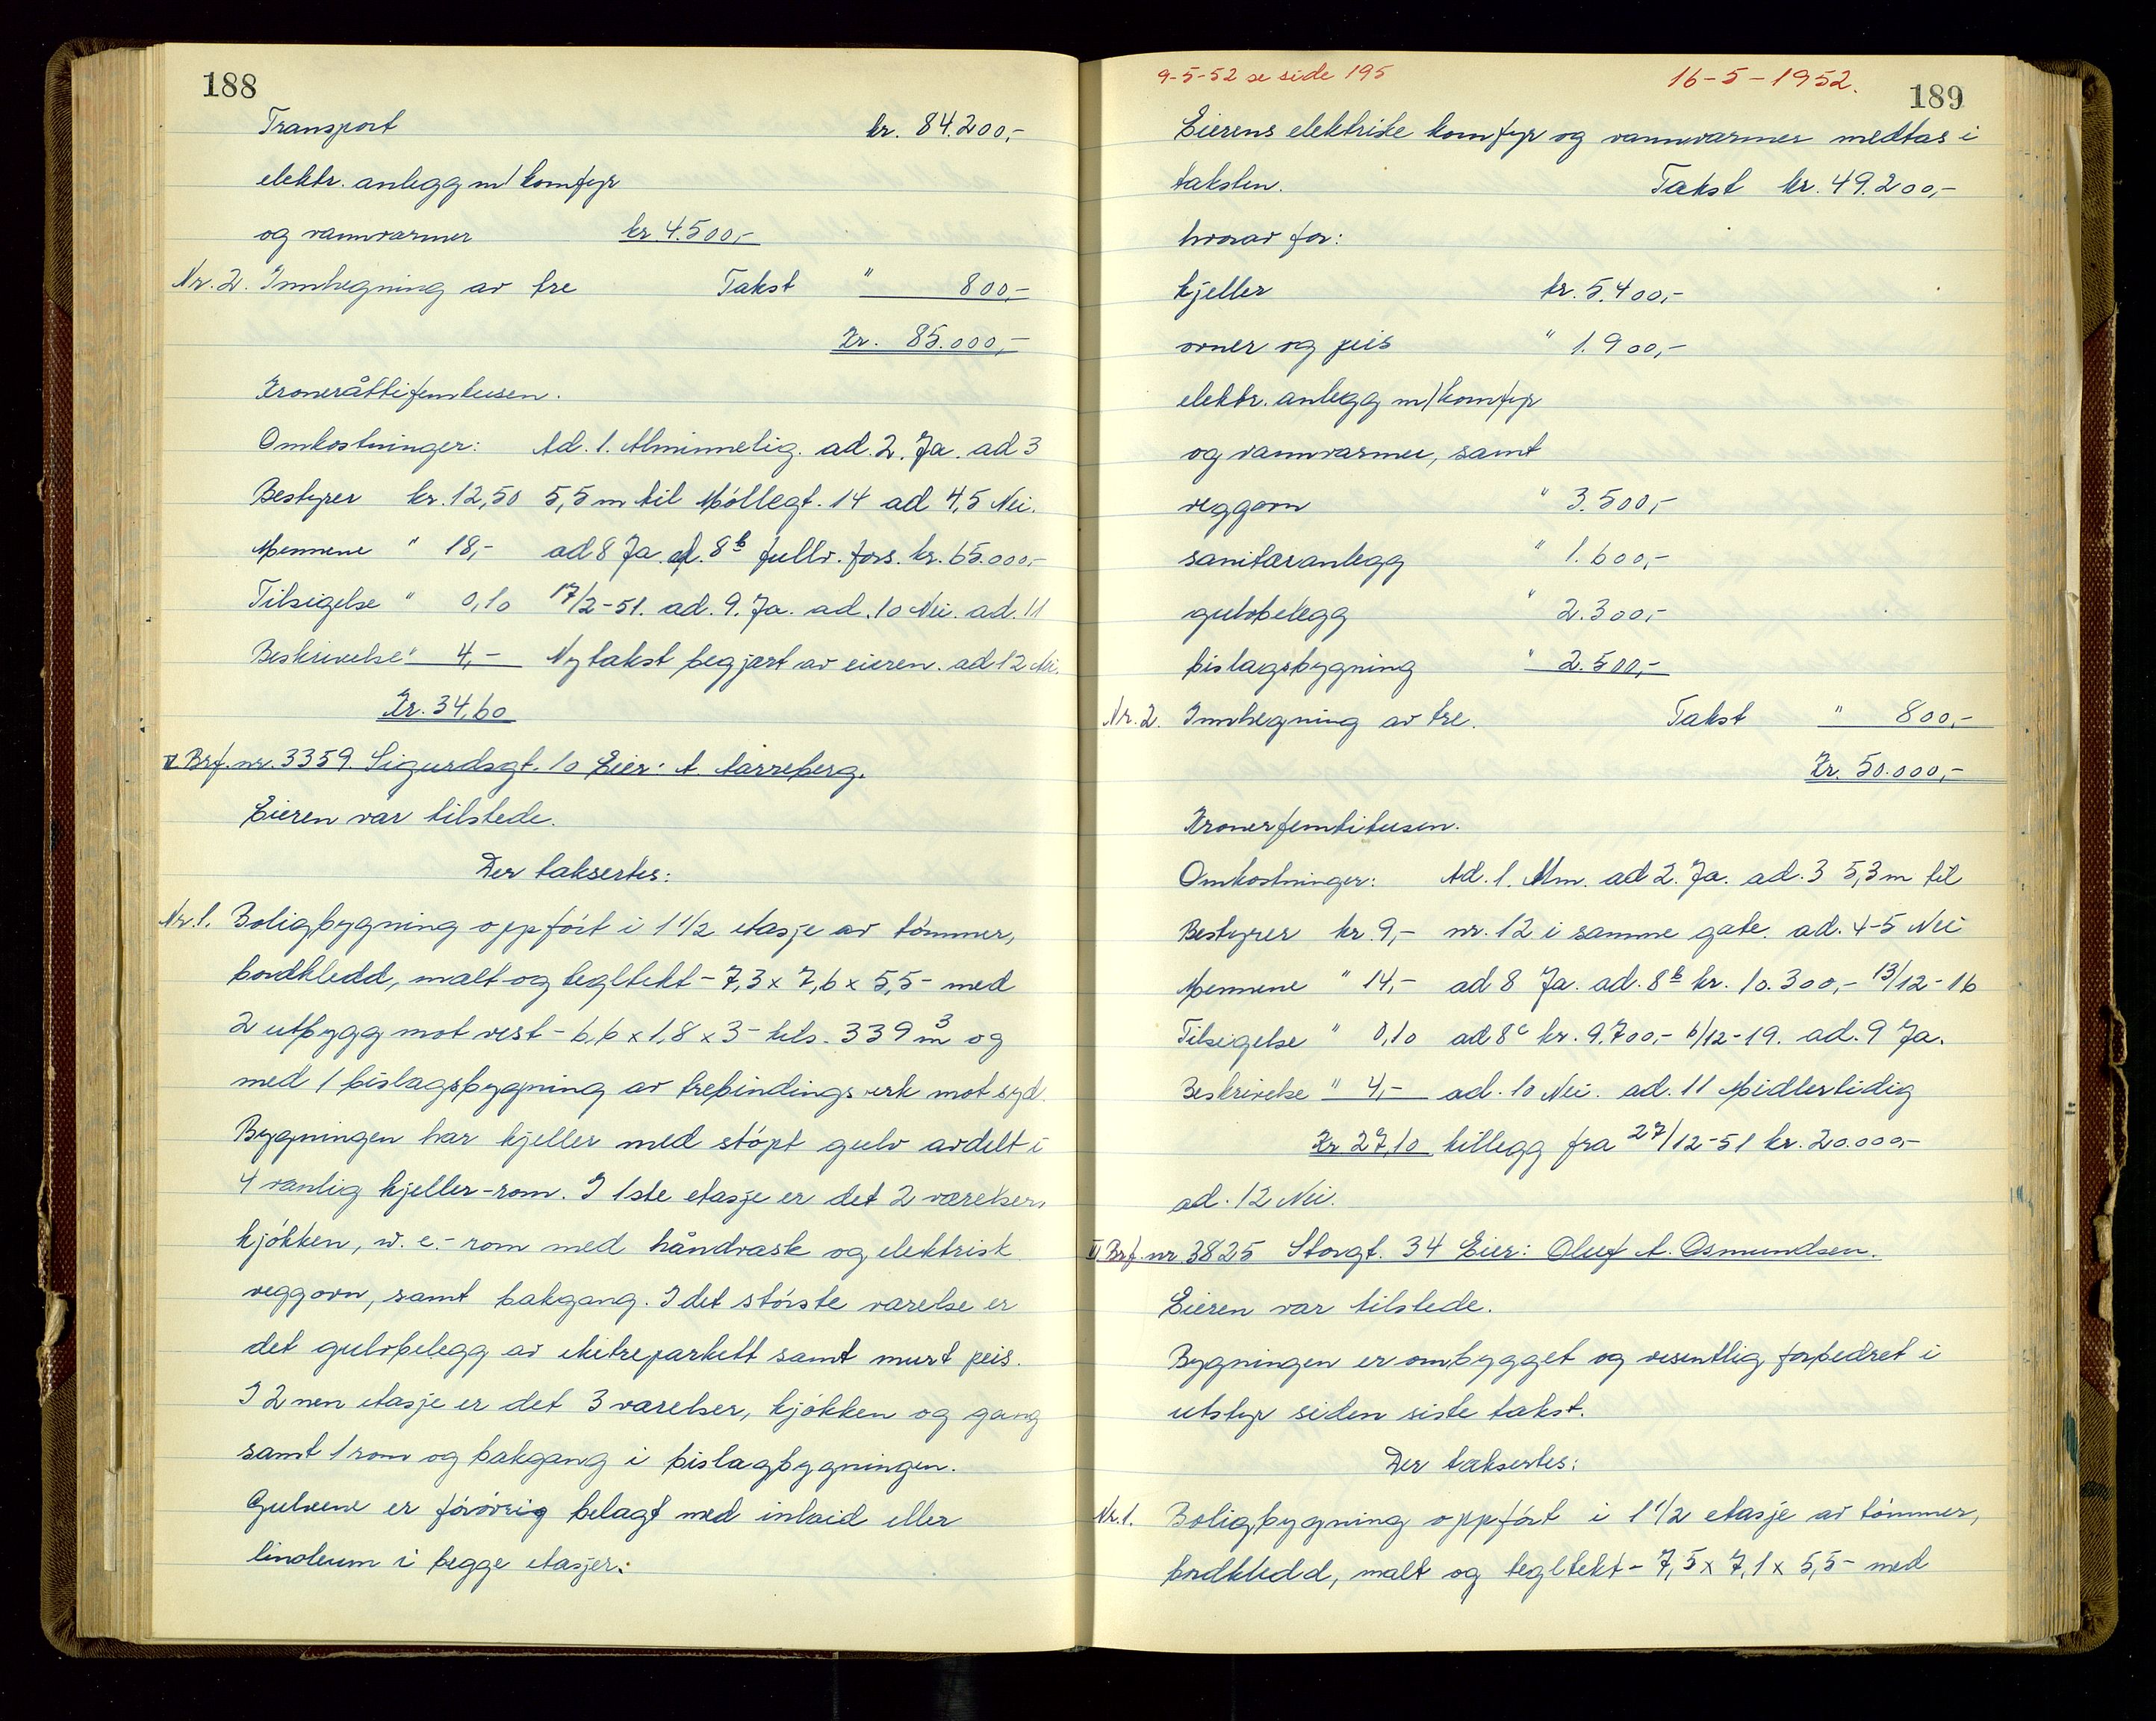 188
Transport kr. 84.200,-
elektr. anlegg m/komfyr
og vannvarmer kr. 4.500,-
Nr. 2. Innhegning av tre Takst " 800,-
Kr. 85.000,-
Kroneråttifemtusen.
Omkostninger: Ad. 1. Alminnelig. ad. 2. Ja. ad 3
Bestyrer kr. 12,50 5,5 m til Møllegt. 14 ad 4,5 Nei.
Mennene " 18,- ad 8 Ja ad. 8b fullv. fors. kr. 65.000,-
Tilsigelse " 0,10 17/2-51. ad. 9. Ja. ad. 10 Nei. ad. 11
Beskrivelse " 4,- Ny takst begjært av eieren. ad 12 Nei.
Kr. 34,60
V Brf. nr. 3359. Sigurdsgt. 10 Eier: A. Aarreberg.
Eieren var tilstede.
Der taksertes:
Nr. 1. Boligbygning oppført i 1 1/2 etasje av tømmer,
bordkledd, malt og tegltekt - 7,3 x 7,6 x 5,5 - med
2 utbygg mot vest - 6,6 x 1,8 x 3 - tils. 339 m3 og
med 1 bislagsbygning av trebindingsverk mot syd.
Bygningen har kjeller med støpt gulv avdelt i
4 vanlig kjeller-rom. I 1ste etasje er det 2 værelser,
kjøkken, w.c.-rom med håndvask og elektrisk
veggovn, samt bakgang. I det største værelse er
det gulvbelegg av eketreparkett samt murt peis.
I 2nen etasje er det 3 værelser, kjøkken og gang
samt 1 rom og bakgang i bislagbygningen.
Gulvene er forøvrig belagt med inlaid eller
linoleum i begge etasjer.
9-5-52 se side 195
16-5-1952.
189
Eierens elektriske komfyr og vannvarmer medtas i
taksten. Takst kr. 49.200,-
hvorav for:
kjeller kr. 5.400,-
ovner og peis " 1.900,-
elektr. anlegg m/komfyr
og vannvarmer, samt
veggovn " 3.500,-
sanitæranlegg " 1.600,-
gulvbelegg " 2.300,-
bislagsbygning " 2.500,-
Nr. 2. Innhegning av tre. Takst " 800,-
Kr. 50.000,-
Kronerfemtitusen.
Omkostninger: Ad. 1. Alm. ad 2. Ja. ad. 3 5,3 m til
Bestyrer kr. 9,- nr. 12 i samme gate. ad. 4-5 Nei
Mennene " 14,- ad 8 Ja. ad. 8b kr. 10.300,- 13/12-16
Tilsigelse " 0,10 ad 8c kr. 9.700,- 6/12-19. ad. 9 Ja.
Beskrivelse " 4,- ad. 10 Nei. ad. 11 Midlertidig
Kr 27,10 tillegg fra 27/12-51 kr. 20.000,-
ad. 12 Nei.
VI Brf. nr. 3825 Storgt. 34 Eier: Oluf A. Osmundsen.
Eieren var tilstede.
Bygningen er ombygget og vesentlig forbedret i
utstyr siden siste takst.
Der taksertes:
Nr. 1. Boligbygning oppført i 1 1/2 etasje av tømmer,
bordkledd, malt og tegltekt - 7,5 x 7,1 x 5,5 - med